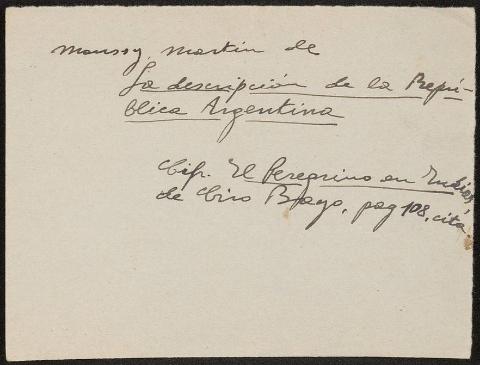 Moussy, Martin de
La descripción de la Repú-
blica Argentina
Cifr. El Peregrino en Indias,
de Ciro Bayo, pag 108, cita